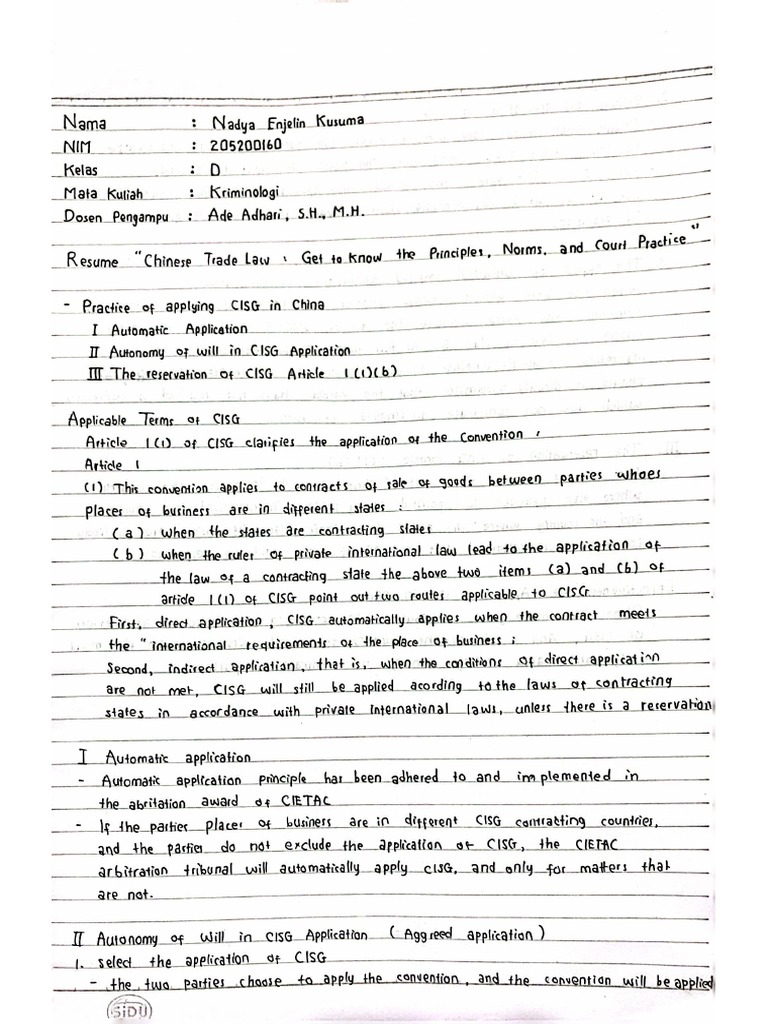 Nama : Nadya Enjelin Kusuma
NIM : 205200160
Kelas : D
Mata Kuliah : Kriminologi
Dosen Pengampu : Ade Adhari, S.H., M.H.
Resume "Chinese Trade Law : Get to Know the Principles, Norms, and Court Practice"
- Practice of applying CISG in China
I Automatic Application
II Autonomy of will in CISG Application
III The reservation of CISG Article 1(1)(b)
Applicable Terms of CISG
Article 1(1) of CISG clarifies the application of the Convention :
Article 1
(1) This convention applies to contracts of sale of goods between parties whoes
places of business are in different states :
(a) when the states are contracting states
(b) when the rules of private international law lead to the application of
the law of a contracting state the above two items (a) and (b) of
article 1(1) of CISG point out two routes applicable to CISG
First, direct application, CISG automatically applies when the contract meets
the "international requirements of the place of business ;
Second, indirect application, that is, when the conditions of direct application
are not met, CISG will still be applied acording to the laws of contracting
states in accordance with private international laws, unless there is a reservation
I Automatic application
- Automatic application principle has been adhered to and implemented in
the abritation award of CIETAC
- If the parties places of business are in different CISG contracting countries,
and the parties do not exclude the application of CISG, the CIETAC
arbitration tribunal will automatically apply CISG, and only for matters that
are not.
II Autonomy of Will in CISG Application (Aggreed application)
1. select the application of CISG
- the two parties choose to apply the convention, and the convention will be applied
SiDU